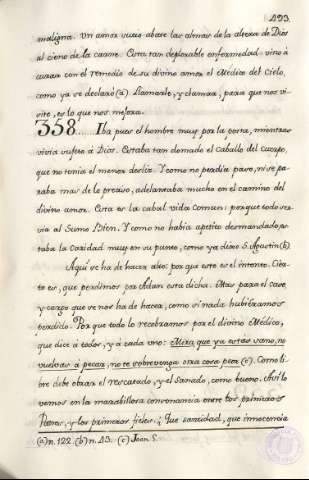 493.
maligna. Un amor vicio abate las almas de la alteza de Dios
al cieno de la carne. Esta tan deplorable enfermedad vino à
curar con el remedio de su divino amor el Médico del Cielo,
como ya se declaró (a) Llamarle, y clamar, para que nos vi-
site, es lo que nos mejora.
358... Iba pues el hombre muy por la posta, mientras
vivia sujeto à Dios. Estaba tan domado el caballo del cuerpo,
que no tenia el menor desliz. Y como no perdia paso, ni se pa-
raba mas de lo preciso, adelantaba mucho en el camino del
divino amor. Esta es la cabal vida comun: porque todo ser-
via al Sumo Bien. Y como no habia apetito desmandado, es-
taba la Caridad muy en su punto, como ya dixo S. Agustin (b)
Aqui se ha de hacer alto: por que este es el intento. Cier-
to es, que perdimos por Adan esta dicha. Mas para el caso,
y cargo que se nos ha de hacer, como si nada hubieramos
perdido. Por que todo lo recobramos por el divino Médico,
que dice à todos, y à cada uno: Mira que ya estas sano, no
vuelvas à pecar, no te sobrevenga otra cosa peor (c). Como li-
bre debe obrar el rescatado, y el Sanado, como bueno. Asi lo
vemos en la maravillosa convenencia entre los primeros
Padres, y los primeros fieles. ¡Que santidad, que innocencia
(a) n. 122. (b) n. 43. (c) Joan 5.